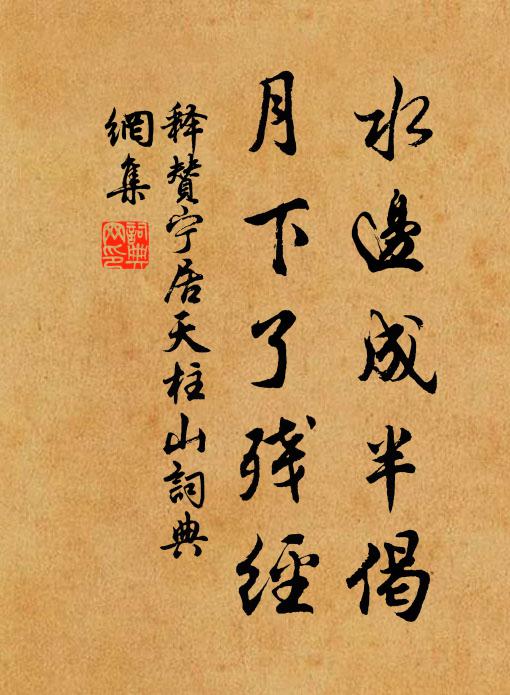 水邊成半偈
月下了残經
释贊宁居天柱山詞典
網集
詞典
网印